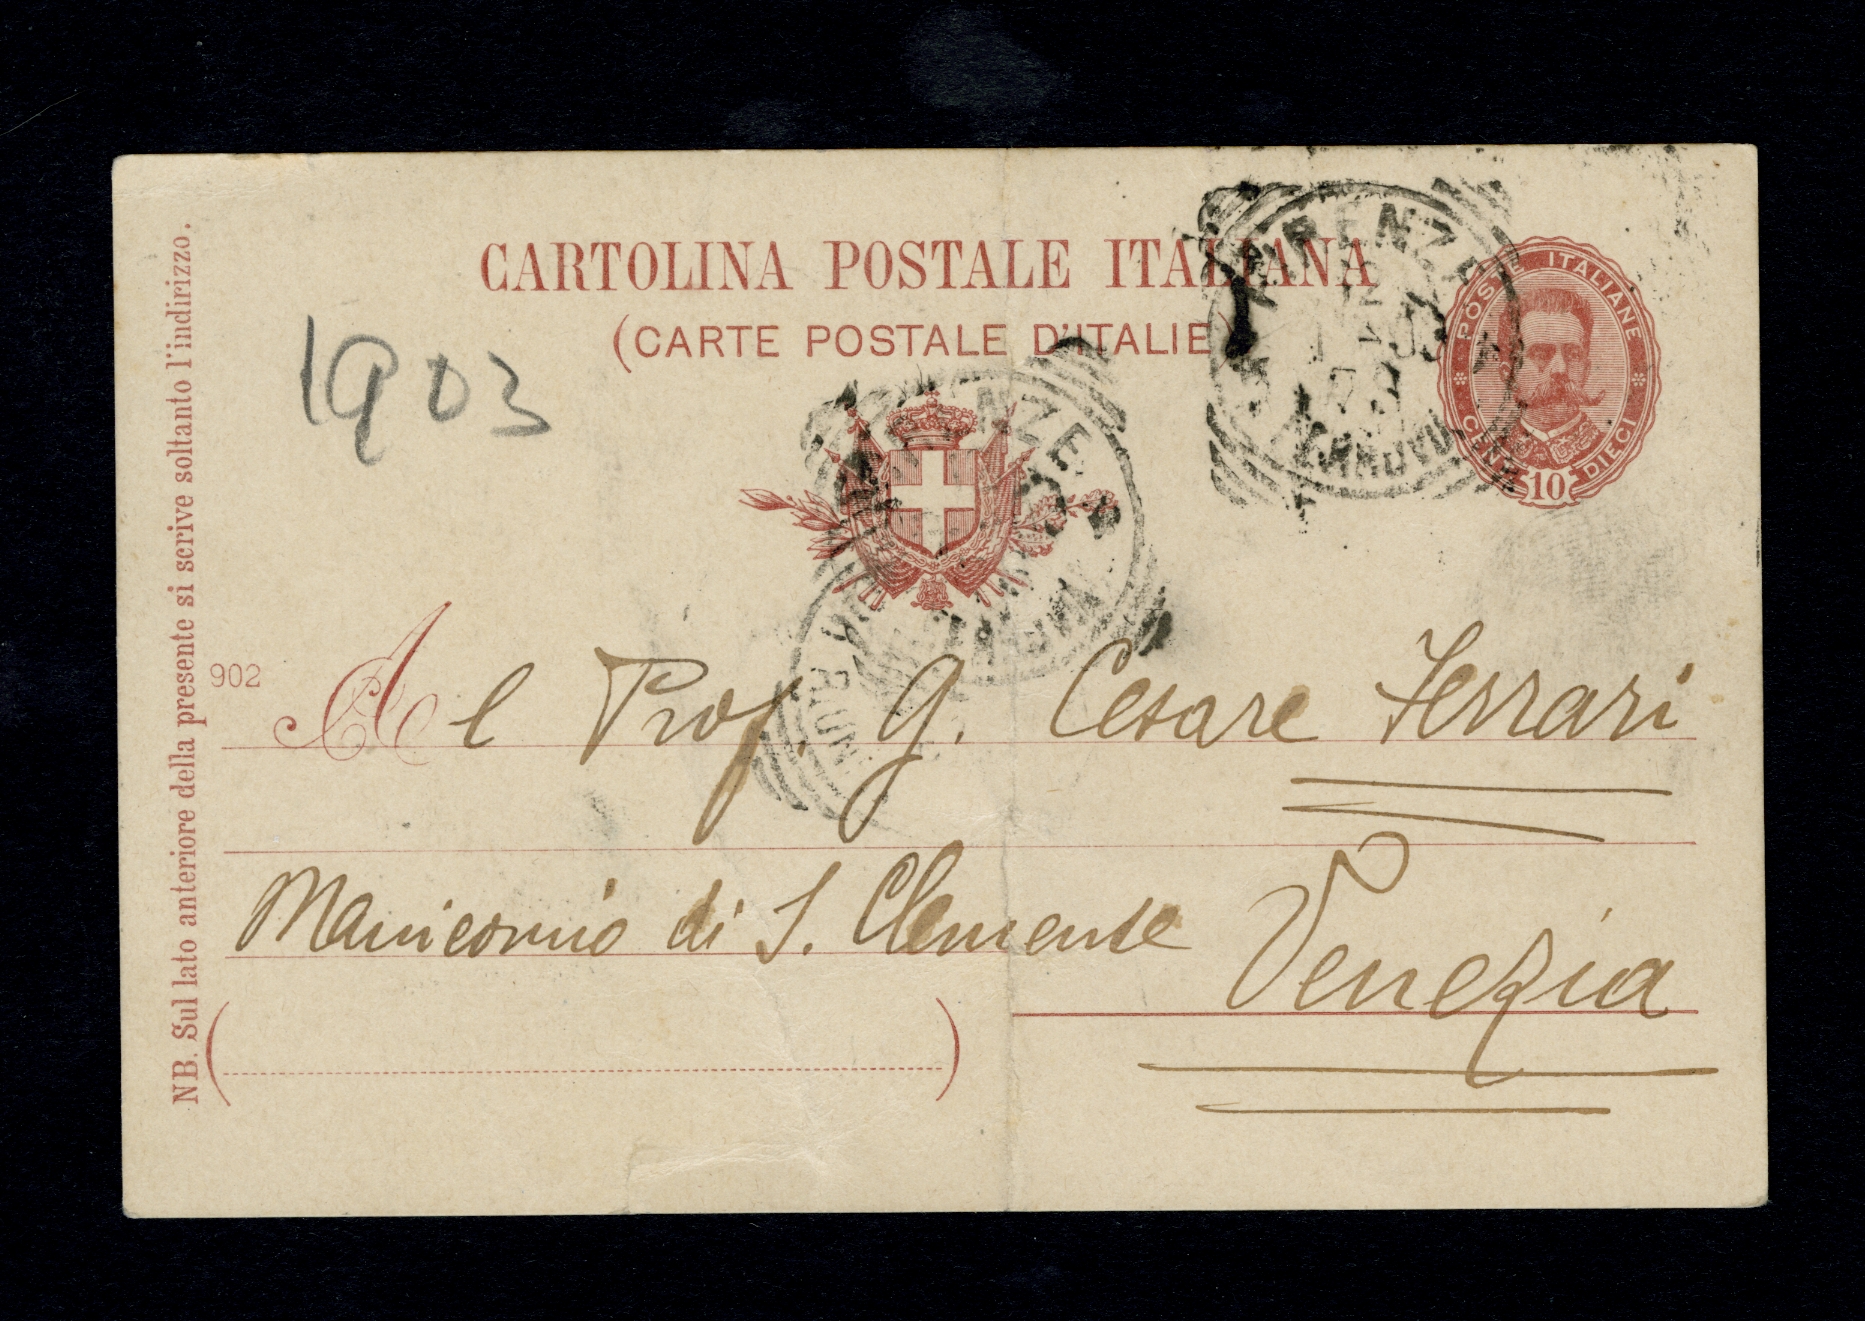 CARTOLINA POSTALE ITALIANA
(CARTE POSTALE D'ITALIE)
POSTE ITALIANE
CENT. DIECI
10
FIRENZE
FERROVIA
1903
NB. Sul lato anteriore della presente si scrive soltanto l'indirizzo.
902
Al Prof. G. Cesare Ferrari
Manicomio di S. Clemente
Venezia